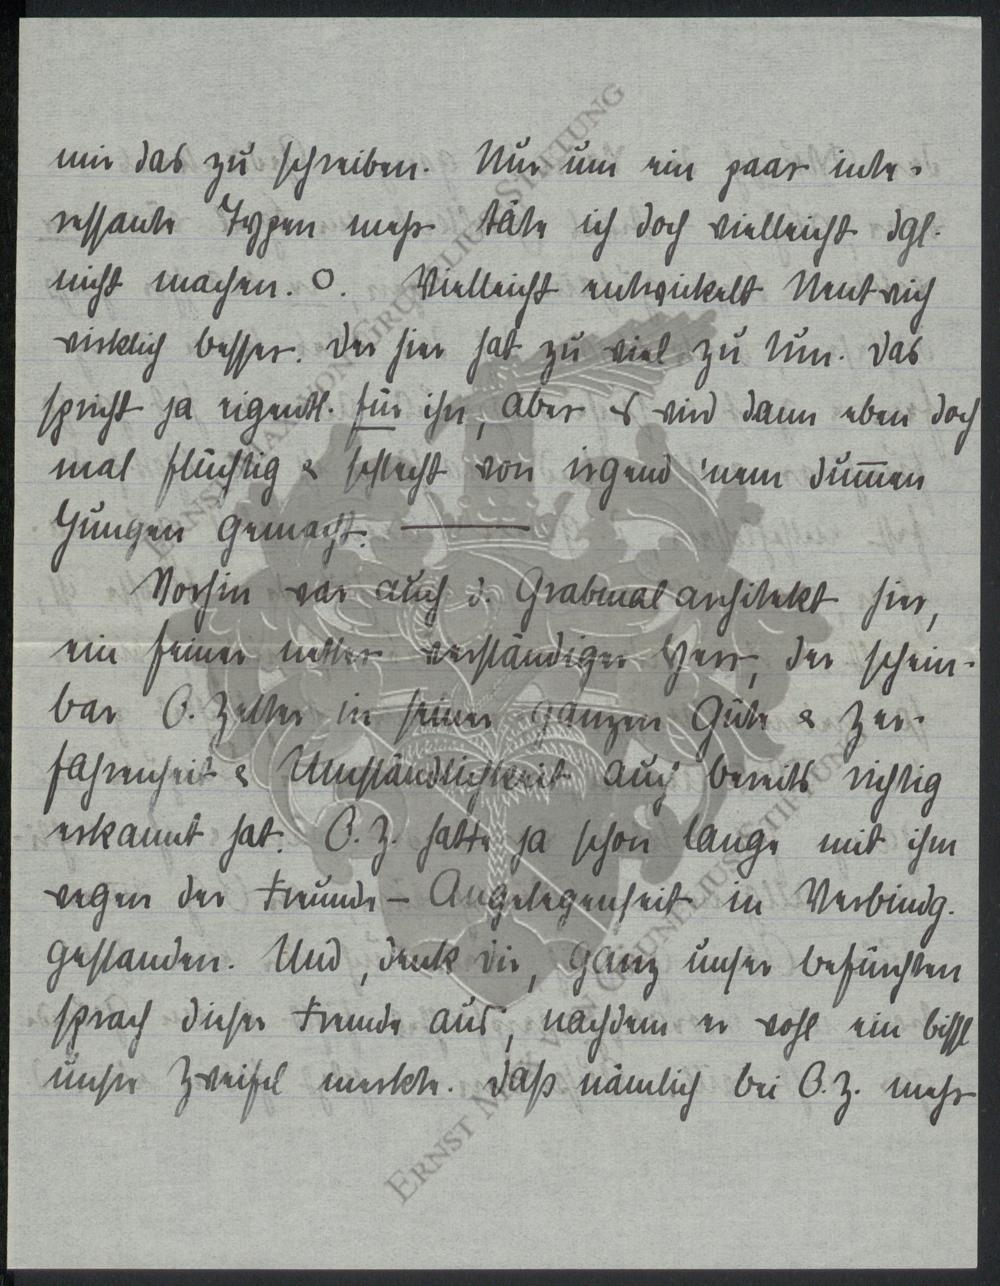 mir das zu schreiben. Nur um ein paar inte-
ressante Typen mehr täte ich doch vielleicht dgl.
nicht machen. O. Vielleicht entwickelt Nentwich
wirklich besser. Der hier hat zu viel zu tun. Das
spricht ja eigentl. für ihn, aber es wird dann eben doch
mal flüchtig & schlecht von irgend 'nem dum̅en
Jungen gemacht.
Vorhin war auch d. Grabmalarchitekt hier,
ein feiner netter verständiger Herr, der schein-
bar O. Zetter in seiner ganzen Güte & Zer-
fahrenheit & Umständlichkeit auch bereits richtig
erkannt hat. O. Z. hatte ja schon lange mit ihm
wegen der Freunde-Angelegenheit in Verbindg.
gestanden. Und, denk dir, ganz unser Befürchten
sprach dieser Fremde aus, nachdem er wohl ein bissl
unsre Zweifel merkte. Daß nämlich bei O. Z. mehr
ERNST MAX VON GRUNELIUS-STIFTUNG
ERNST MAX VON GRUNELIUS-STIFTUNG